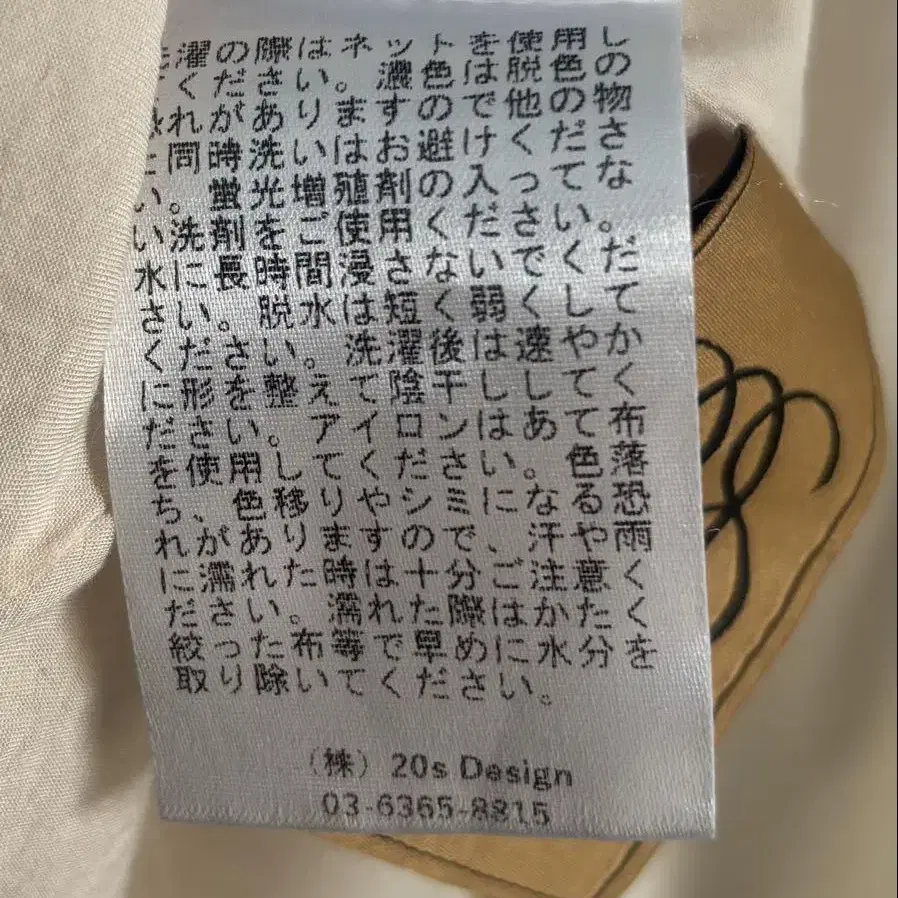 洗濯の際はネットを使用し
てください。濃色は脱色の
恐れがありますので他の物
と同時洗いはお避けくださ
い。蛍光増殖剤の入ってな
い洗剤をご使用ください。
水に長時間浸さないでくだ
さい。脱水は短く弱くして
ください。洗濯後は速やか
に形を整えて陰干ししてく
ださい。アイロンはあて布
を使用してください。色落
ち、色移りやシミになる恐
れがありますので、汗や雨
に濡れた時は十分ご注意く
ださい。濡れた際はかたく
絞った布等で早めに水分を
取り除いてください。
(株) 20s Design
03-6365-8815